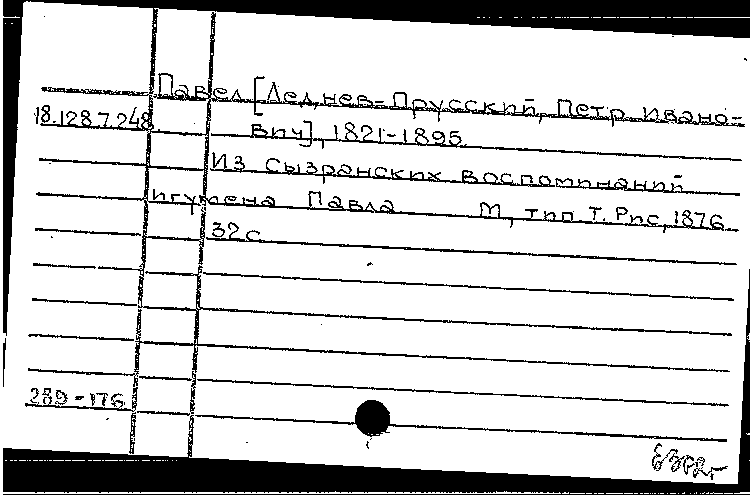 Павел [Леднев-Прусский, Петр Ивано-
18.128.7.248 вич], 1821-1895.
Из сызранских воспоминаний
игумена Павла М., тип Т. Рис, 1876.
32 с.
289-176